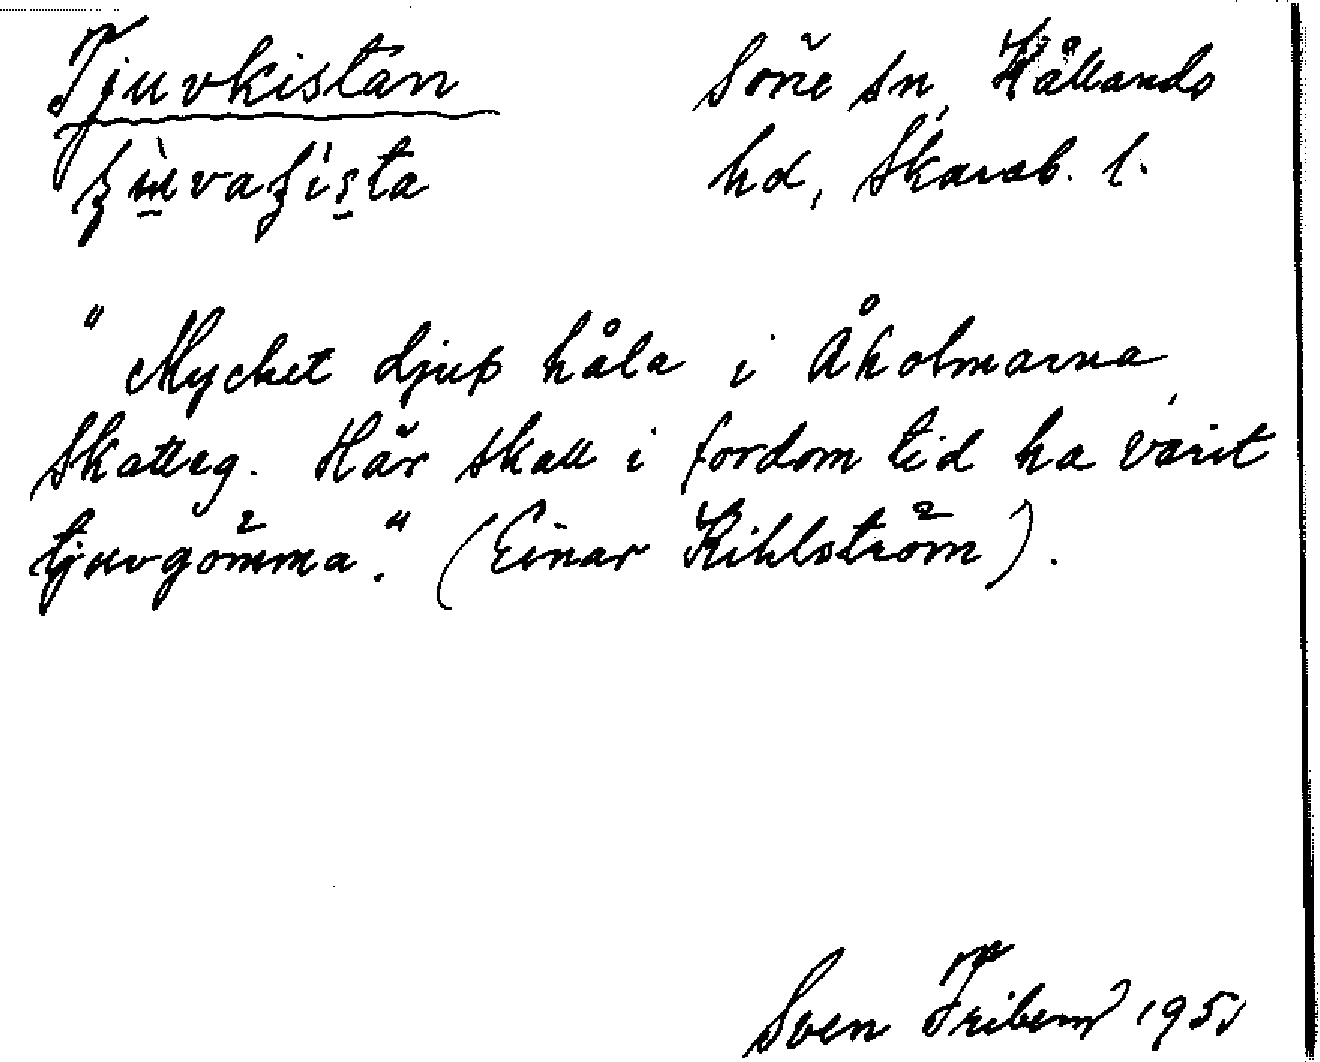 Tjuvkistan
Söne sn, Kållands
hd, Skarab. l.
"Mycket djup håla i Åholmarna,
Skatteg. Här skall i fordom tid ha varit
tjuvgömma." (Einar Kihlström).
Sven 1951